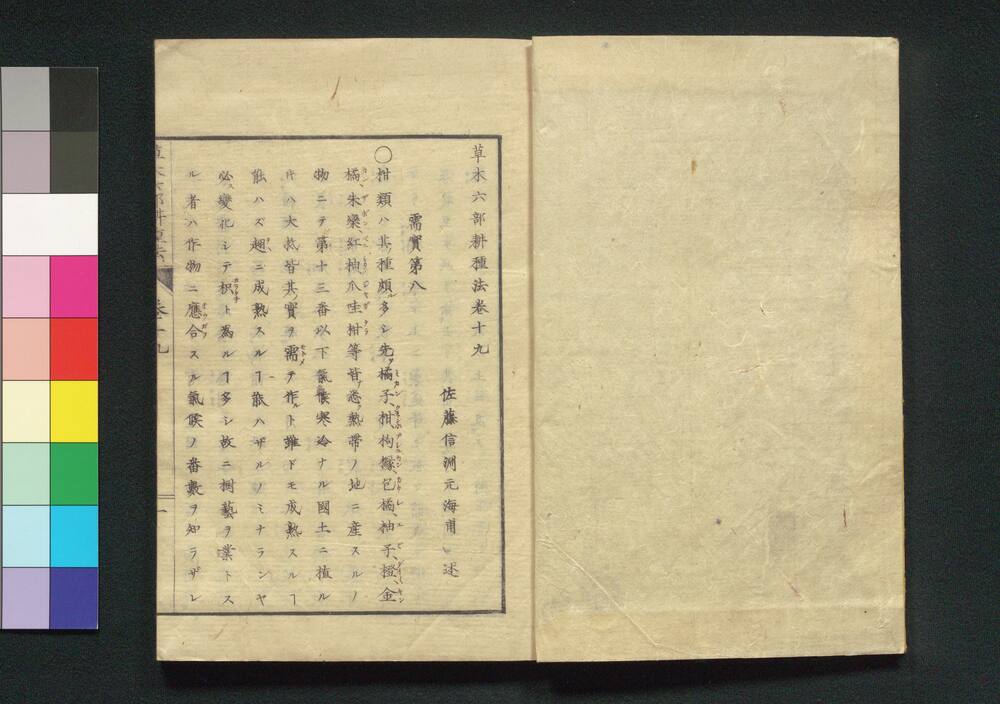 草木六部耕種法卷十九
佐藤信淵元海甫述
需實第八
〇柑類ハ其種頗多シ先橘子、柑、枸櫞、包橘、柚子、橙、金
橘、朱欒、紅柚、爪哇柑等皆悉ク熱帶ノ地ニ産スルノ
物ニテ第十三番以下氣候寒冷ナル國土ニ植ル
キハ大抵皆其實ヲ需テ作ルト雖ドモ成熟スルヿ
能ハズ趐ニ成熟スルヿ能ハザルノミナランヤ
必變化シテ枳ト爲ルヿ多シ故ニ樹藝ヲ業トス
ル者ハ作物ニ應合スル氣候ノ番數ヲ知ラザレ
草木六部耕種法 卷十九 一